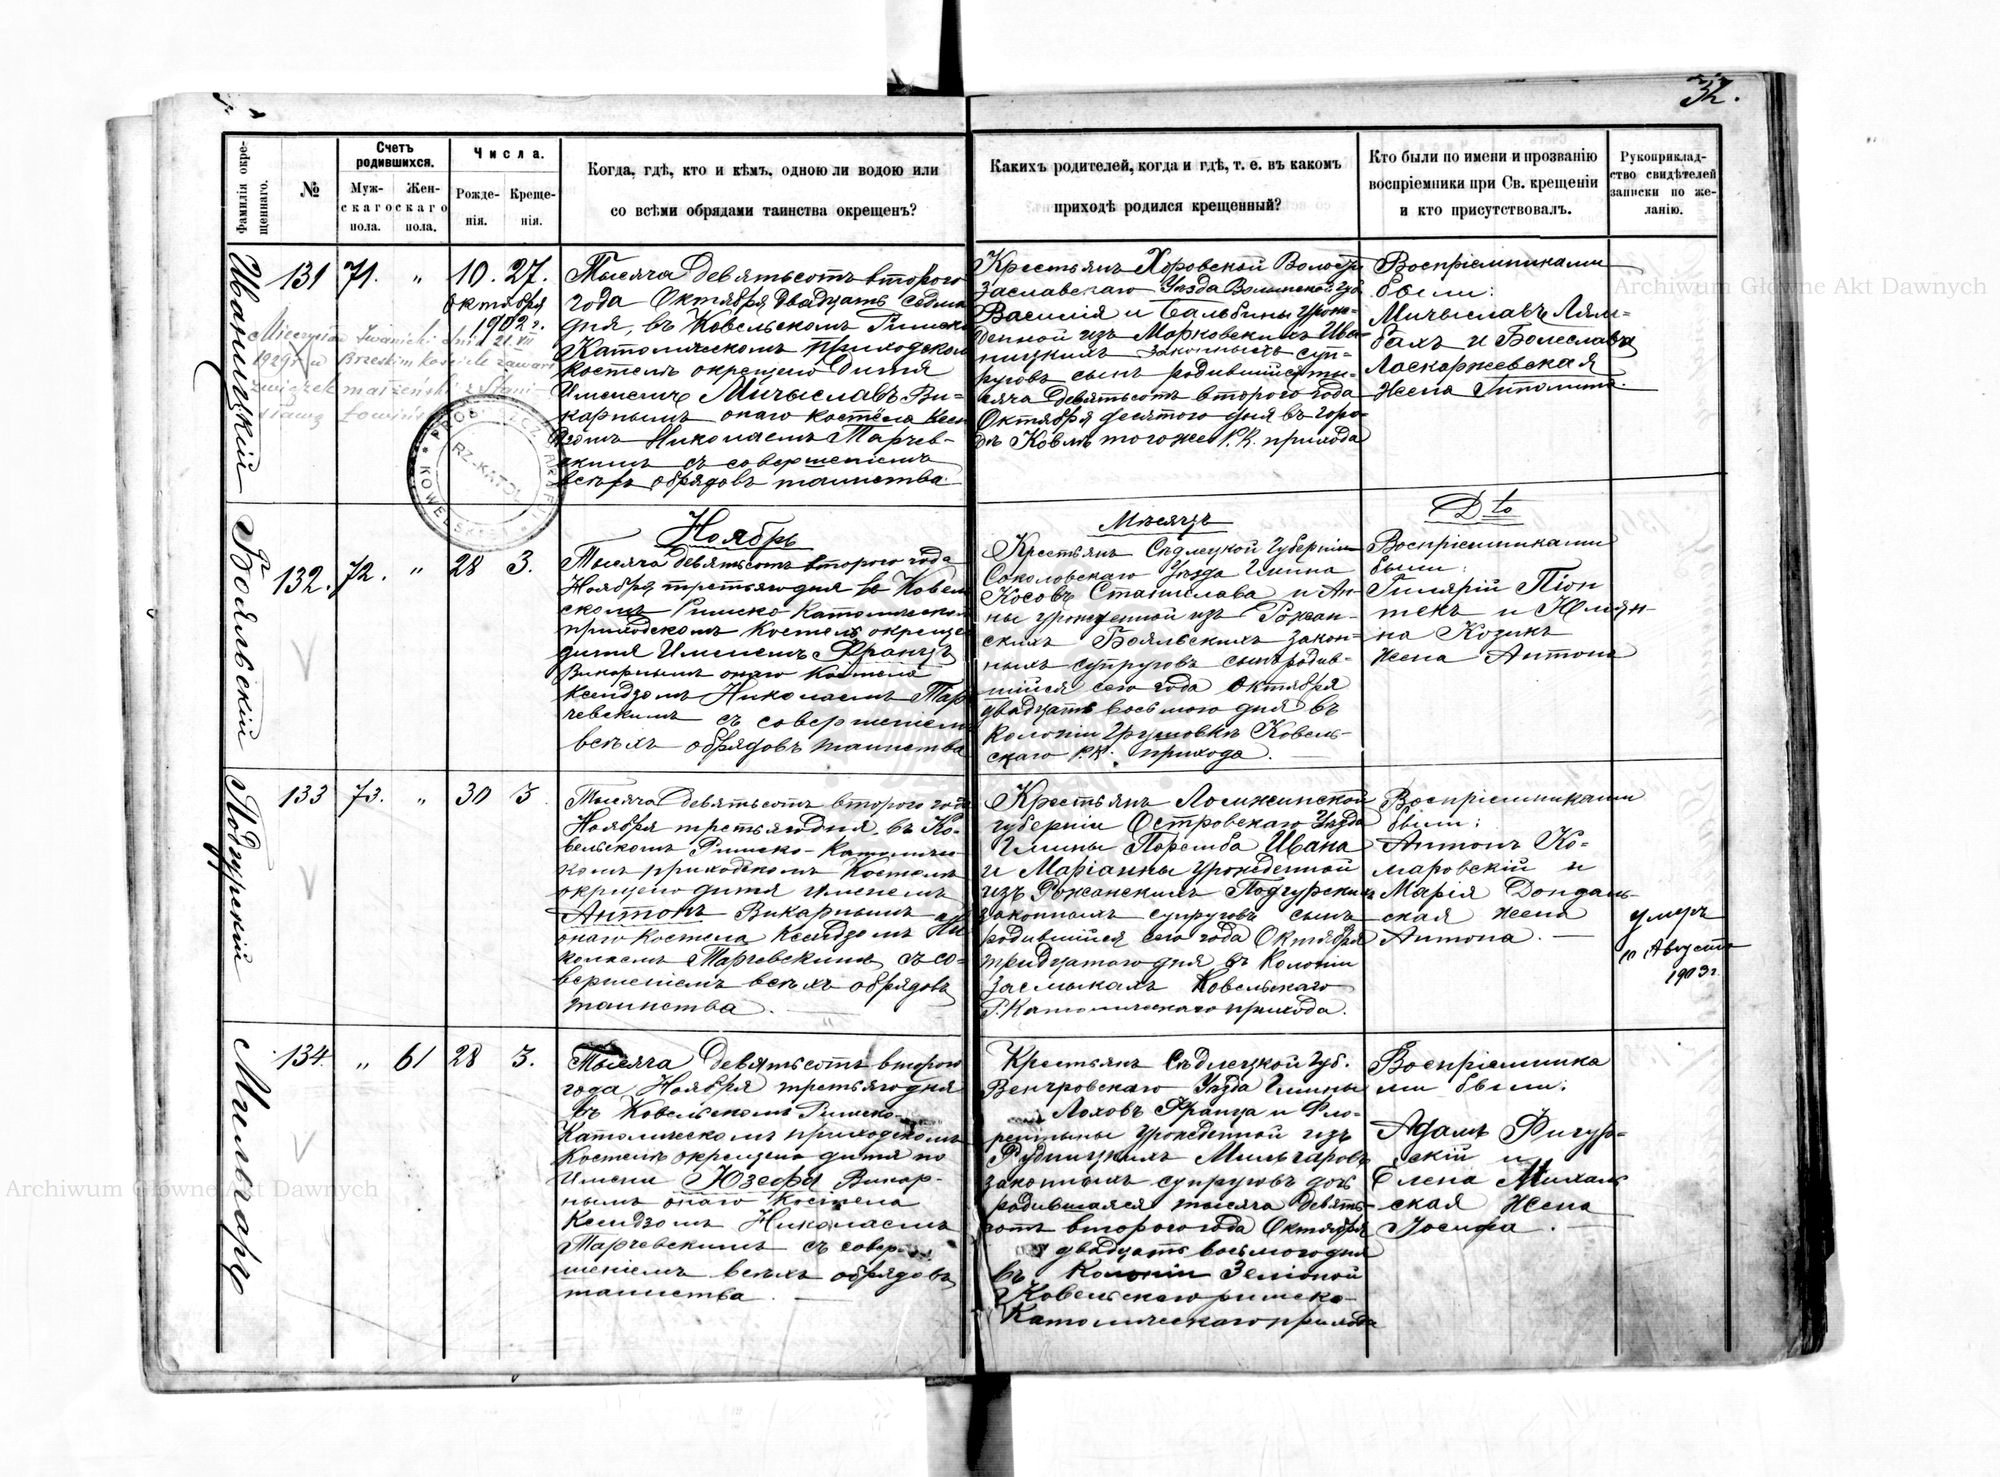 32.
Фамилія окре-
щеннаго.
№
Счетъ
родившихся.
Муж-
скаго
пола.
Жен-
скаго
пола.
Числа.
Рожде-
нія.
Креще-
нія.
Когда, гдѣ, кто и кѣмъ, одною ли водою или
со всѣми обрядами таинства окрещенъ?
Какихъ родителей, когда и гдѣ, т. е. въ какомъ
приходѣ родился крещенный?
Кто были по имени и прозванію
воспріемники при Св. крещеніи
и кто присутствовалъ.
Рукоприклад-
ство свидѣтелей
записки по же-
ланію.
Иваницкій
131
71.
"
10.
27.
Октября
1902 г.
Mieczysław Iwanicki dnia 21.VII
1929 r. w Brzeskim kościele zawarł
związek małżeński z Stani-
sławą
PROB. RZ-KATOL. KOWELSK
Тысяча девятьсотъ второго
года Октября двадцать седьма
дня, въ Ковельскомъ Римско
Католическомъ приходском
костелѣ окрещено дитя
Именемъ Мичыславъ Ви-
карнымъ онаго костёла Ксен
дзомъ Николаемъ Тарчев-
скимъ съ совершеніемъ
всѣхъ обрядовъ таинства.
Крестьянъ Хоровской Волости
Заславскаго Уѣзда Волынской губ
Василія и Бальбины урож-
денной изъ Марковскихъ Ива-
ницкихъ законныхъ суп-
руговъ сынъ родившійся ты-
сяча девятьсотъ второго года
Октября десятого дня въ горо-
дѣ Ковлѣ тогоже Р.К. прихода
Воспріемниками
были:
Мичыславъ Лям-
бахъ и Болеслава
Ласкаржевская
жена Ипполита.
Ноябрь
Мѣсяцъ
Dto
Бояльскій
132.
72.
"
28
3.
Тысяча девятьсотъ второго года
Ноября третьяго дня въ Ковель
скомъ Римско-Католическом
приходскомъ Костелѣ окреще
дитя Именемъ Францъ
Викарнымъ онаго Костела
Ксендзомъ Николаемъ Тар
чевскимъ съ совершеніем
всѣхъ обрядовъ таинства
Крестьянъ Сѣдлецкой Губерніи
Соколовскаго Уѣзда Гмина
Косовъ Станислава и Ан-
ны урожденной изъ Рожан-
скихъ Бояльскихъ закон-
ныхъ супруговъ сынъ родив-
шійся сего года Октября
двадцать восьмого дня въ
колоніи Грушовкѣ Ковель-
скаго Р.К. прихода.
Воспріемниками
были:
Гилярій Піон
текъ и Юліян-
на Козикъ
жена Антона
Подгурскій
133
73.
"
30
3
Тысяча девятьсотъ второго года
Ноября третьяго дня въ Ко-
вельскомъ Римско-Католиче-
комъ приходскомъ Костелѣ
окрещено дитя именемъ
Антонъ Викарнымъ
онаго Костела Ксендзомъ Ни
колаемъ Тарчевскимъ съ со-
вершеніемъ всѣхъ обрядовъ
таинства.
Крестьянъ Ломжинской
губерніи Островскаго Уѣзда
Гмины Поремба Ивана
и Маріанны урожденной
изъ Рожанскихъ Подгурских
законныхъ супруговъ сынъ
родившійся сего года Октября
тридцатого дня въ Колоніи
Засмыкахъ Ковельскаго
Р.Католическаго прихода.
Воспріемниками
были:
Антонъ Ко-
маровскій и
Марія Дондаль-
ская жена
Антона.
умеръ
10 Августа
1903 г.
Мильгаръ
134.
"
61
28
3.
Тысяча девятьсотъ второго
года Ноября третьяго дня
въ Ковельскомъ Римско-
Католическомъ приходскомъ
Костелѣ окрещено дитя по
Имени Юзефа Викар-
нымъ онаго Костела
Ксендзомъ Николаемъ
Тарчевскимъ съ совер-
шеніемъ всѣхъ обрядовъ
таинства.
Крестьянъ Сѣдлецкой Губ.
Венгровскаго Уѣзда Гмины
Лоховъ Франца и Фло-
рентыны урожденной изъ
Рудницкихъ Мильгаровъ
законныхъ супруговъ дочь
родившаяся тысяча девять-
сотъ второго года Октября
двадцать восьмого дня
въ Колоніи Зеліоной
Ковельскаго римско-
Католическаго прихода
Воспріемника
ми были:
Адамъ Фигур-
скій и
Елена Михаль
ская жена
Іосифа.
Archiwum Główne Akt Dawnych
Archiwum Główne Akt Dawnych